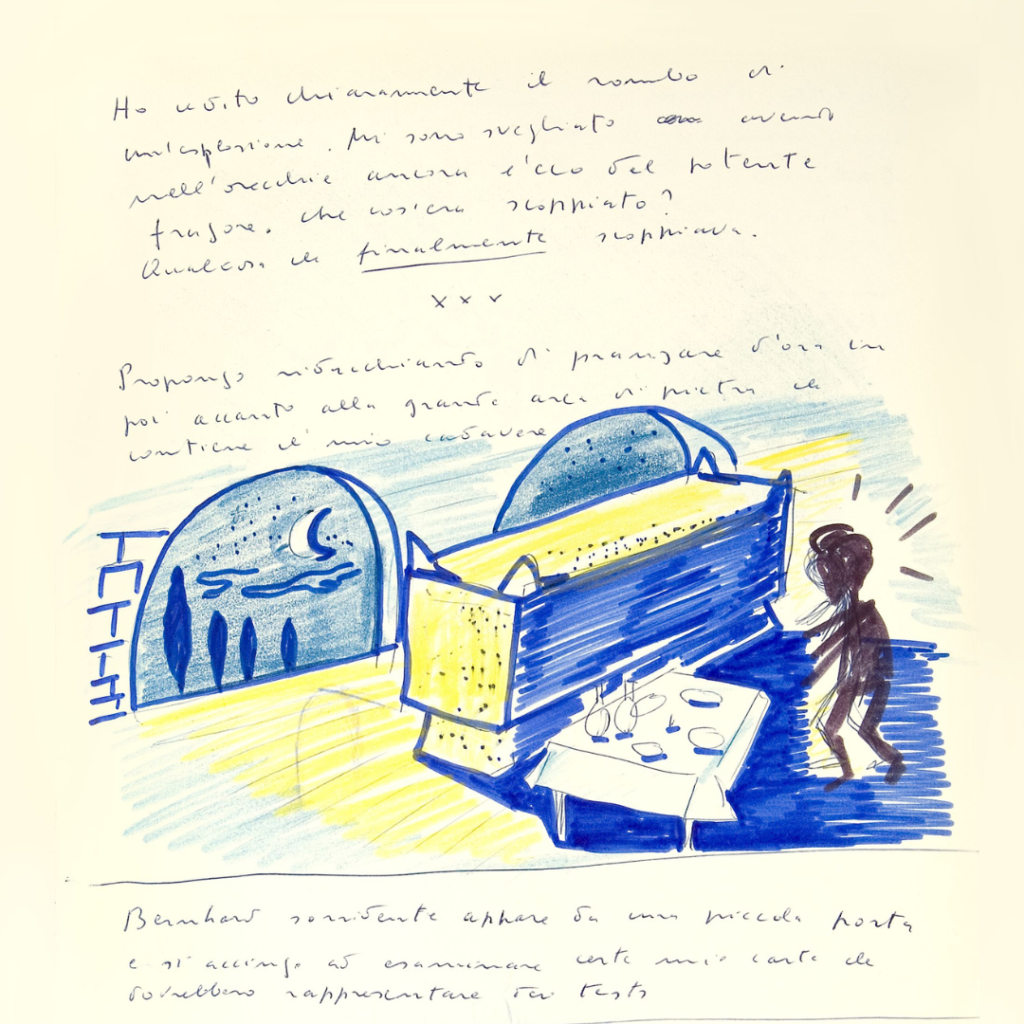 Ho udito chiaramente il rombo di
un'esplosione. Mi sono svegliato avendo
nell'orecchie ancora l'eco del potente
fragore. Che cos'era scoppiato?
Qualcosa che finalmente scoppiava.
x x x
Propongo ridacchiando di pranzare d'ora in
poi accanto alla grande arca di pietra che
contiene il mio cadavere
Bernhard sorridente appare da una piccola porta
e si accinge ad esaminare certe mie carte che
dovrebbero rappresentare dei tests